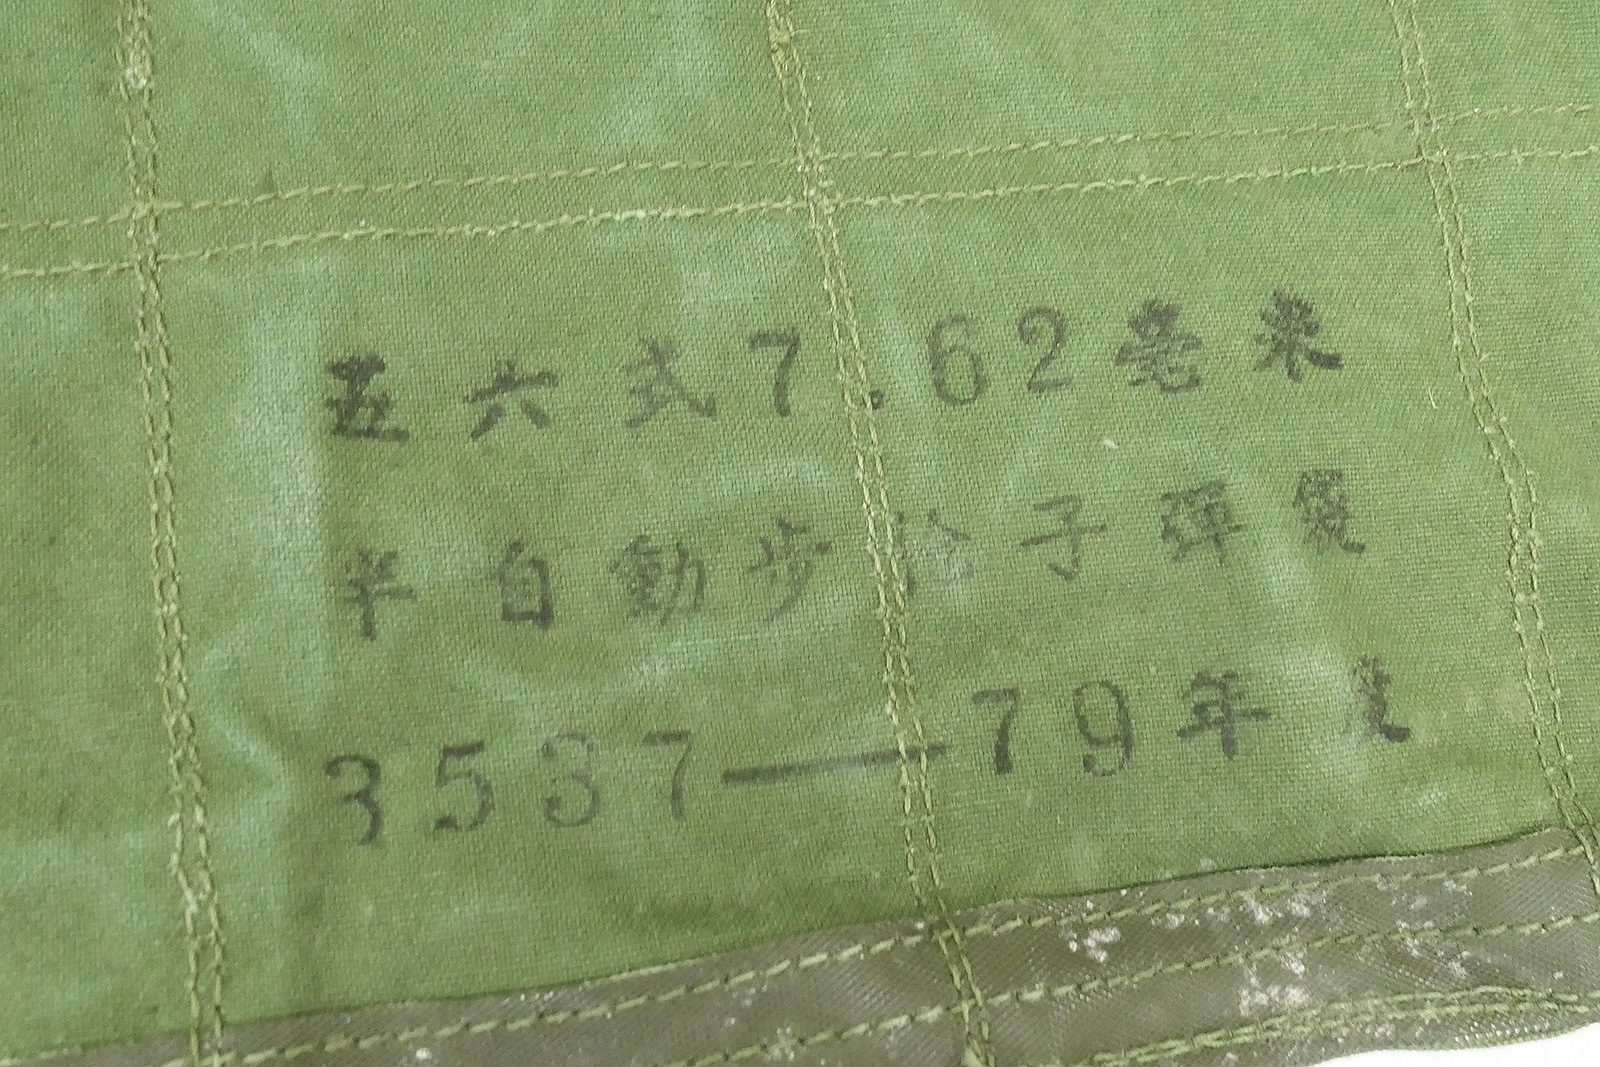 五六式7.62毫米
半自動步枪子彈袋
3537—79年